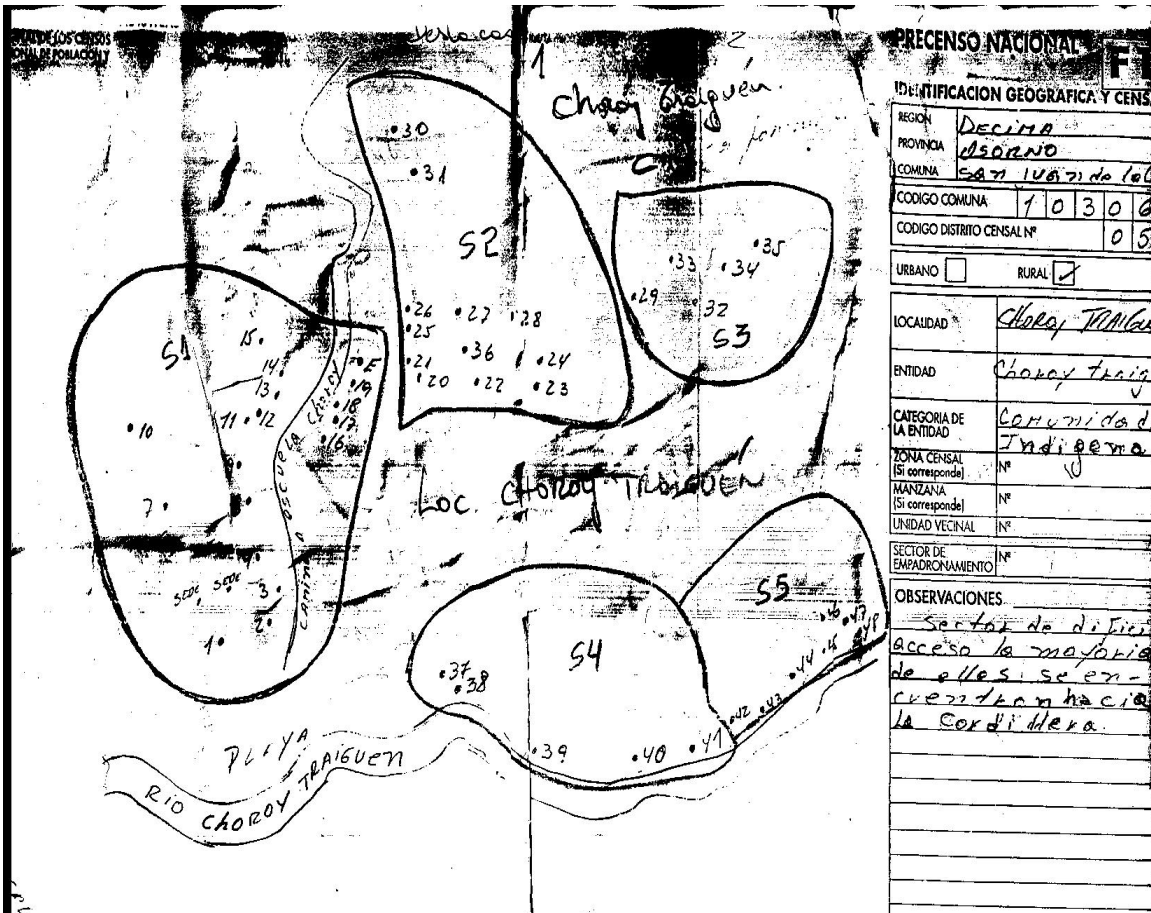 DE LOS CENSOS
NAL DE POBLACION Y
1
2
Choroy Traiguén
30
31
S2
26
27
28
25
21
36
24
20
22
23
35
33
34
29
32
S3
S1
15
14
13
11
12
10
E
19
18
17
16
7
SEDE
SEDE
3
2
1
CAMINO A ESCUELA CHOROY
LOC. CHOROY TRAIGUEN
S4
37
38
39
40
41
S5
42
43
44
45
46
47
48
PLAYA
RIO CHOROY TRAIGUEN
PRECENSO NACIONAL
IDENTIFICACION GEOGRAFICA Y CENS
REGION DECIMA
PROVINCIA OSORNO
COMUNA San Juan de la C
CODIGO COMUNA 1 0 3 0 6
CODIGO DISTRITO CENSAL Nº 0 5
URBANO RURAL
LOCALIDAD CHOROY TRAIGU
ENTIDAD Choroy traig
CATEGORIA DE LA ENTIDAD Comunidad Indigena
ZONA CENSAL (Si corresponde) Nº
MANZANA (Si corresponde) Nº
UNIDAD VECINAL Nº
SECTOR DE EMPADRONAMIENTO Nº
OBSERVACIONES
Sector de dificil
acceso la mayoria
de ellos se en-
cuentran hacia
la Cordillera.